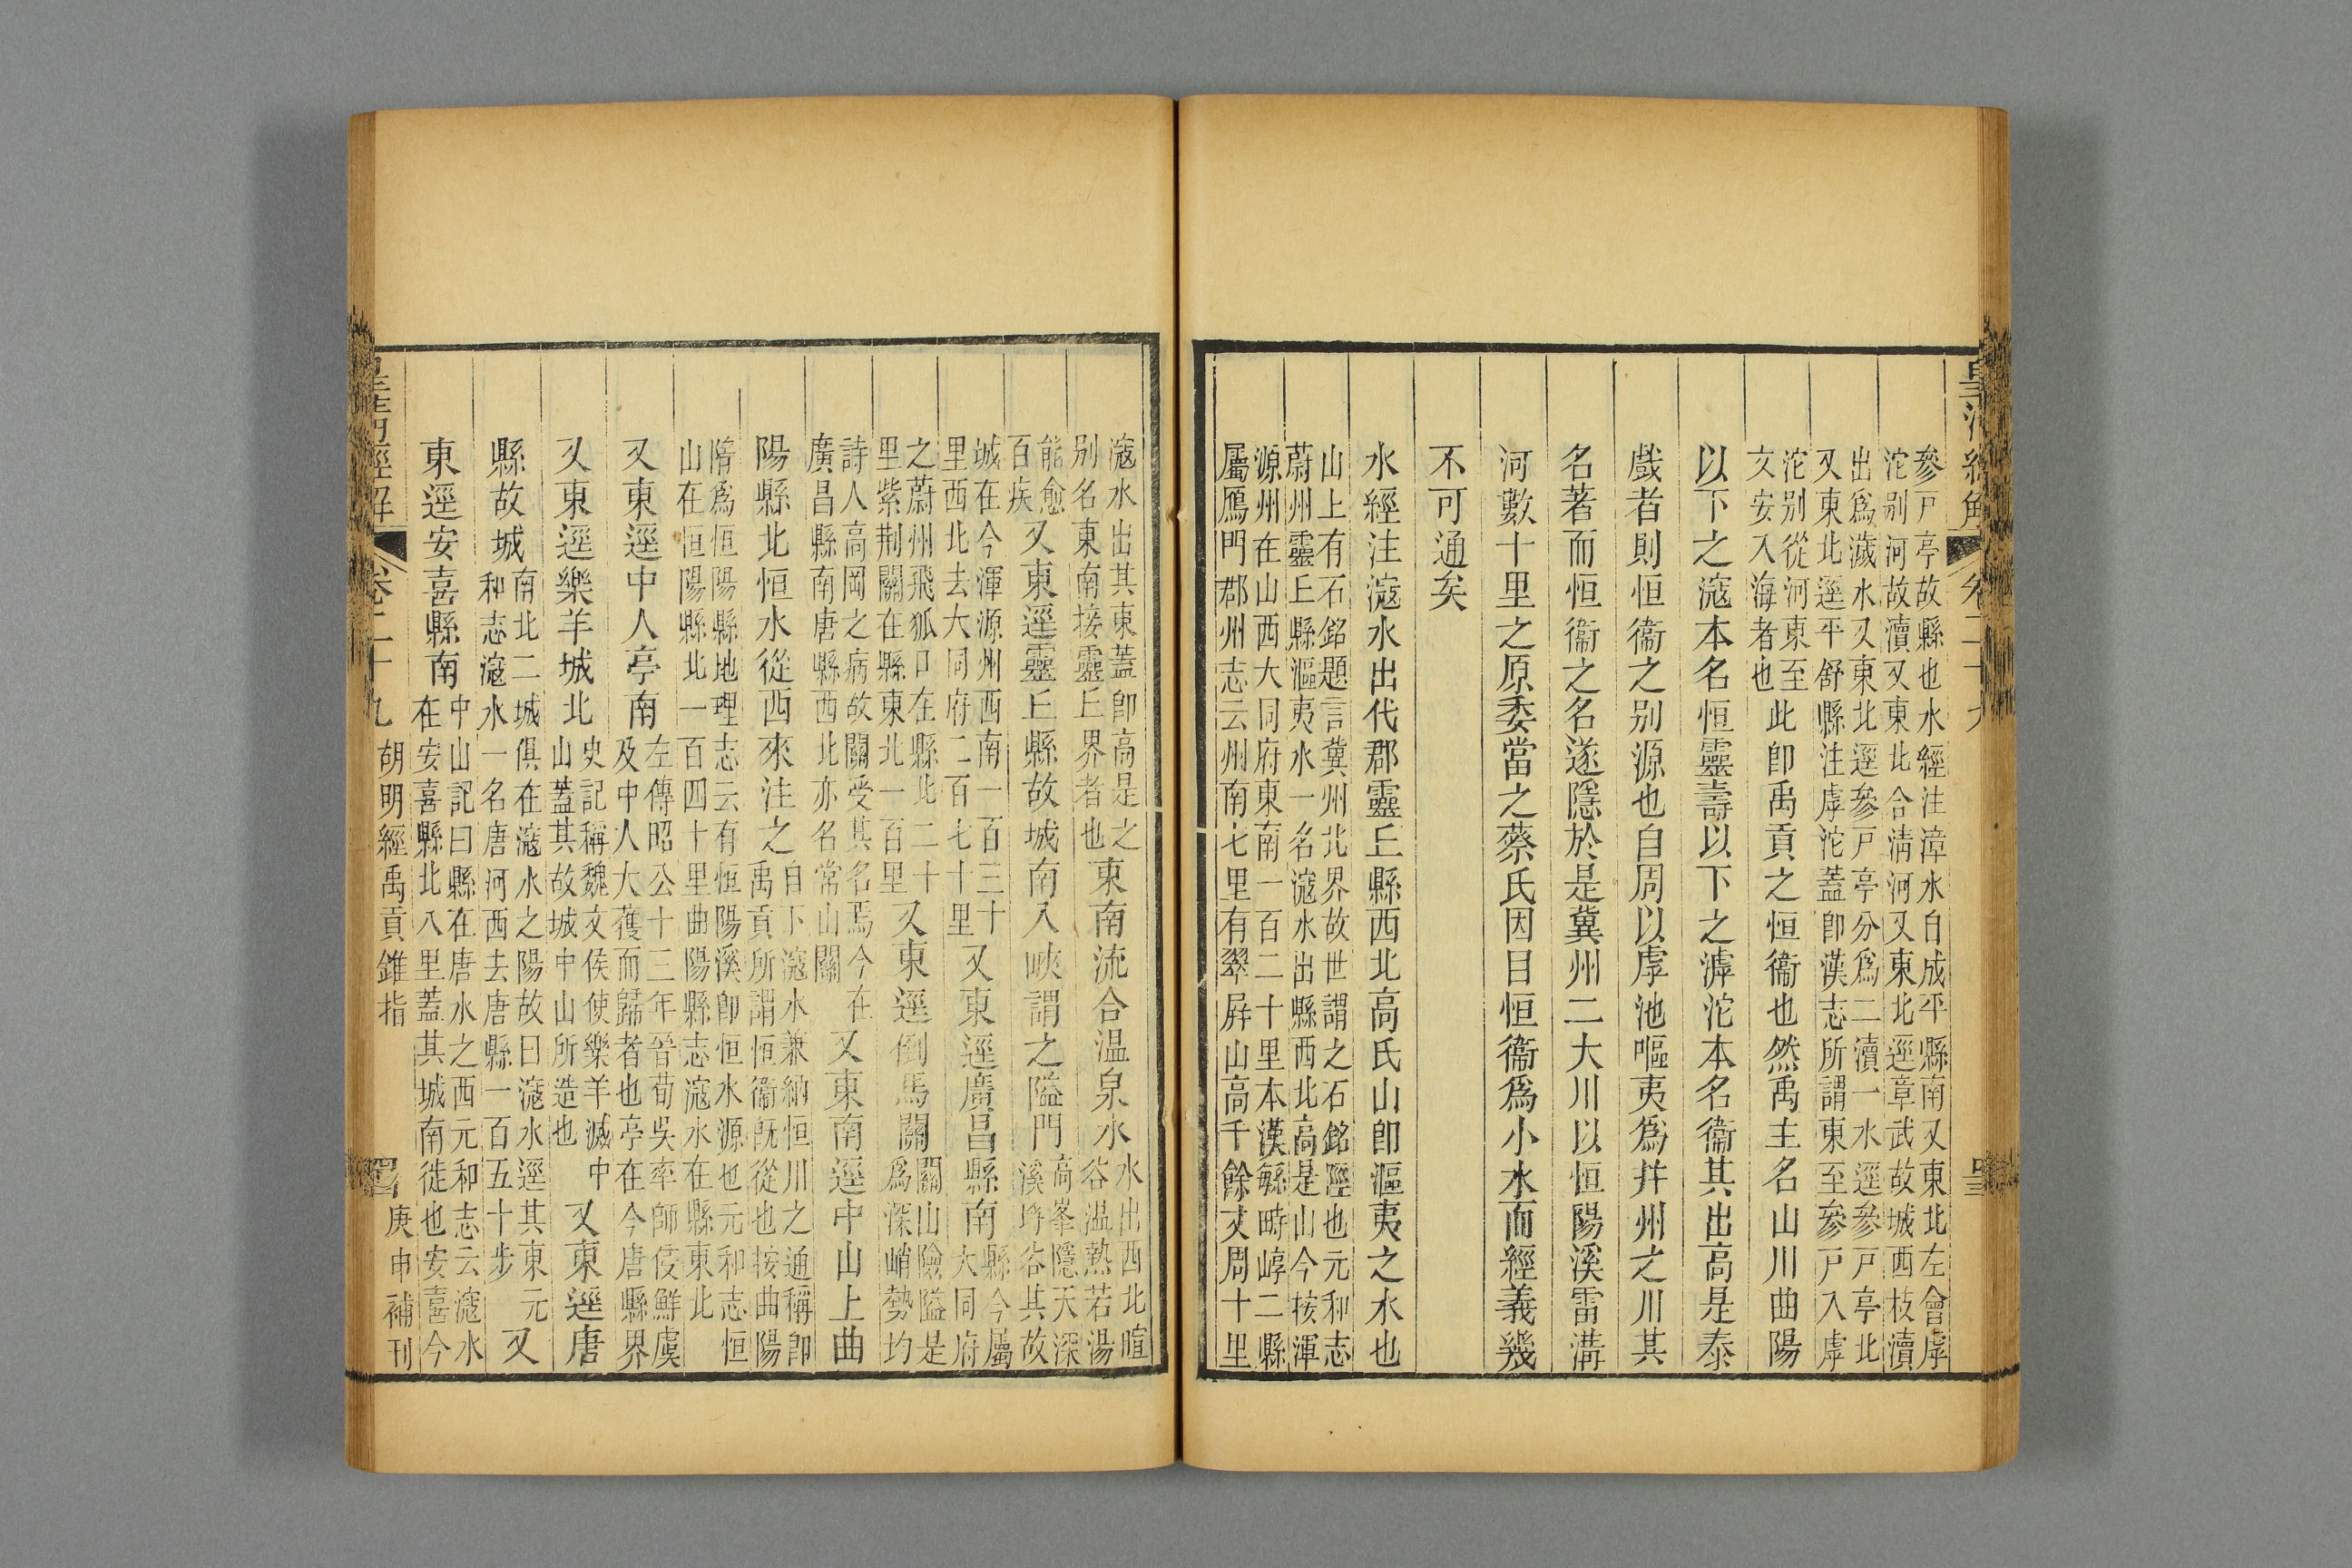 皇清經解 卷二十九
參戸亭故縣也水經注漳水自成平縣南又東北左會虖
沱别河故瀆又東北合淸河又東北逕章武故城西枝瀆
出爲濊水又東北逕參戸亭分爲二瀆一水逕參戸亭北
又東北逕平舒縣注虖沱蓋卽漢志所謂東至參戸入虖
沱别從河東至
文安入海者也此卽禹貢之恒衞也然禹主名山川曲陽
以下之滱本名恒靈壽以下之滹沱本名衞其出高是泰
戲者則恒衞之别源也自周以虖池嘔夷爲幷州之川其
名著而恒衞之名遂隱於是冀州二大川以恒陽溪雷溝
河數十里之原委當之蔡氏因目恒衞爲小水而經義幾
不可通矣
水經注滱水出代郡靈丘縣西北高氏山卽漚夷之水也
山上有石銘題言冀州北界故世謂之石銘陘也元和志
蔚州靈丘縣漚夷水一名滱水出縣西北高是山今按渾
源州在山西大同府東南一百二十里本漢㡓畤崞二縣
屬鴈門郡州志云州南七里有翠屛山高千餘丈周十里
滱水出其東蓋卽高是之
别名東南接靈丘界者也東南流合温泉水水出西北暄
谷温熱若湯
能愈
百疾又東逕靈丘縣故城南入峽謂之隘門高峯隱天深
溪埒谷其故
城在今渾源州西南一百三十
里西北去大同府二百七十里又東逕廣昌縣南縣今屬
大同府
之蔚州飛狐口在縣北二十
里紫荆關在縣東北一百里又東逕倒馬關關山險隘是
爲深峭勢均
詩人高岡之病故關受其名焉今在
廣昌縣南唐縣西北亦名常山關又東南逕中山上曲
陽縣北恒水從西來注之自下滱水兼納恒川之通稱卽
禹貢所謂恒衞旣從也按曲陽
隋爲恒陽縣地理志云有恒陽溪卽恒水源也元和志恒
山在恒陽縣北一百四十里曲陽縣志滱水在縣東北
又東逕中人亭南左傳昭公十三年晉荀吳率師侵鮮虞
及中人大獲而歸者也亭在今唐縣界
又東逕樂羊城北史記稱魏文侯使樂羊滅中
山蓋其故城中山所造也又東逕唐
縣故城南北二城俱在滱水之陽故曰滱水逕其東元
和志滱水一名唐河西去唐縣一百五十步又
東逕安喜縣南中山記曰縣在唐水之西元和志云滱水
在安喜縣北八里蓋其城南徙也安喜今
皇淸經解 卷二十九 胡明經禹貢錐指 庚申補刊